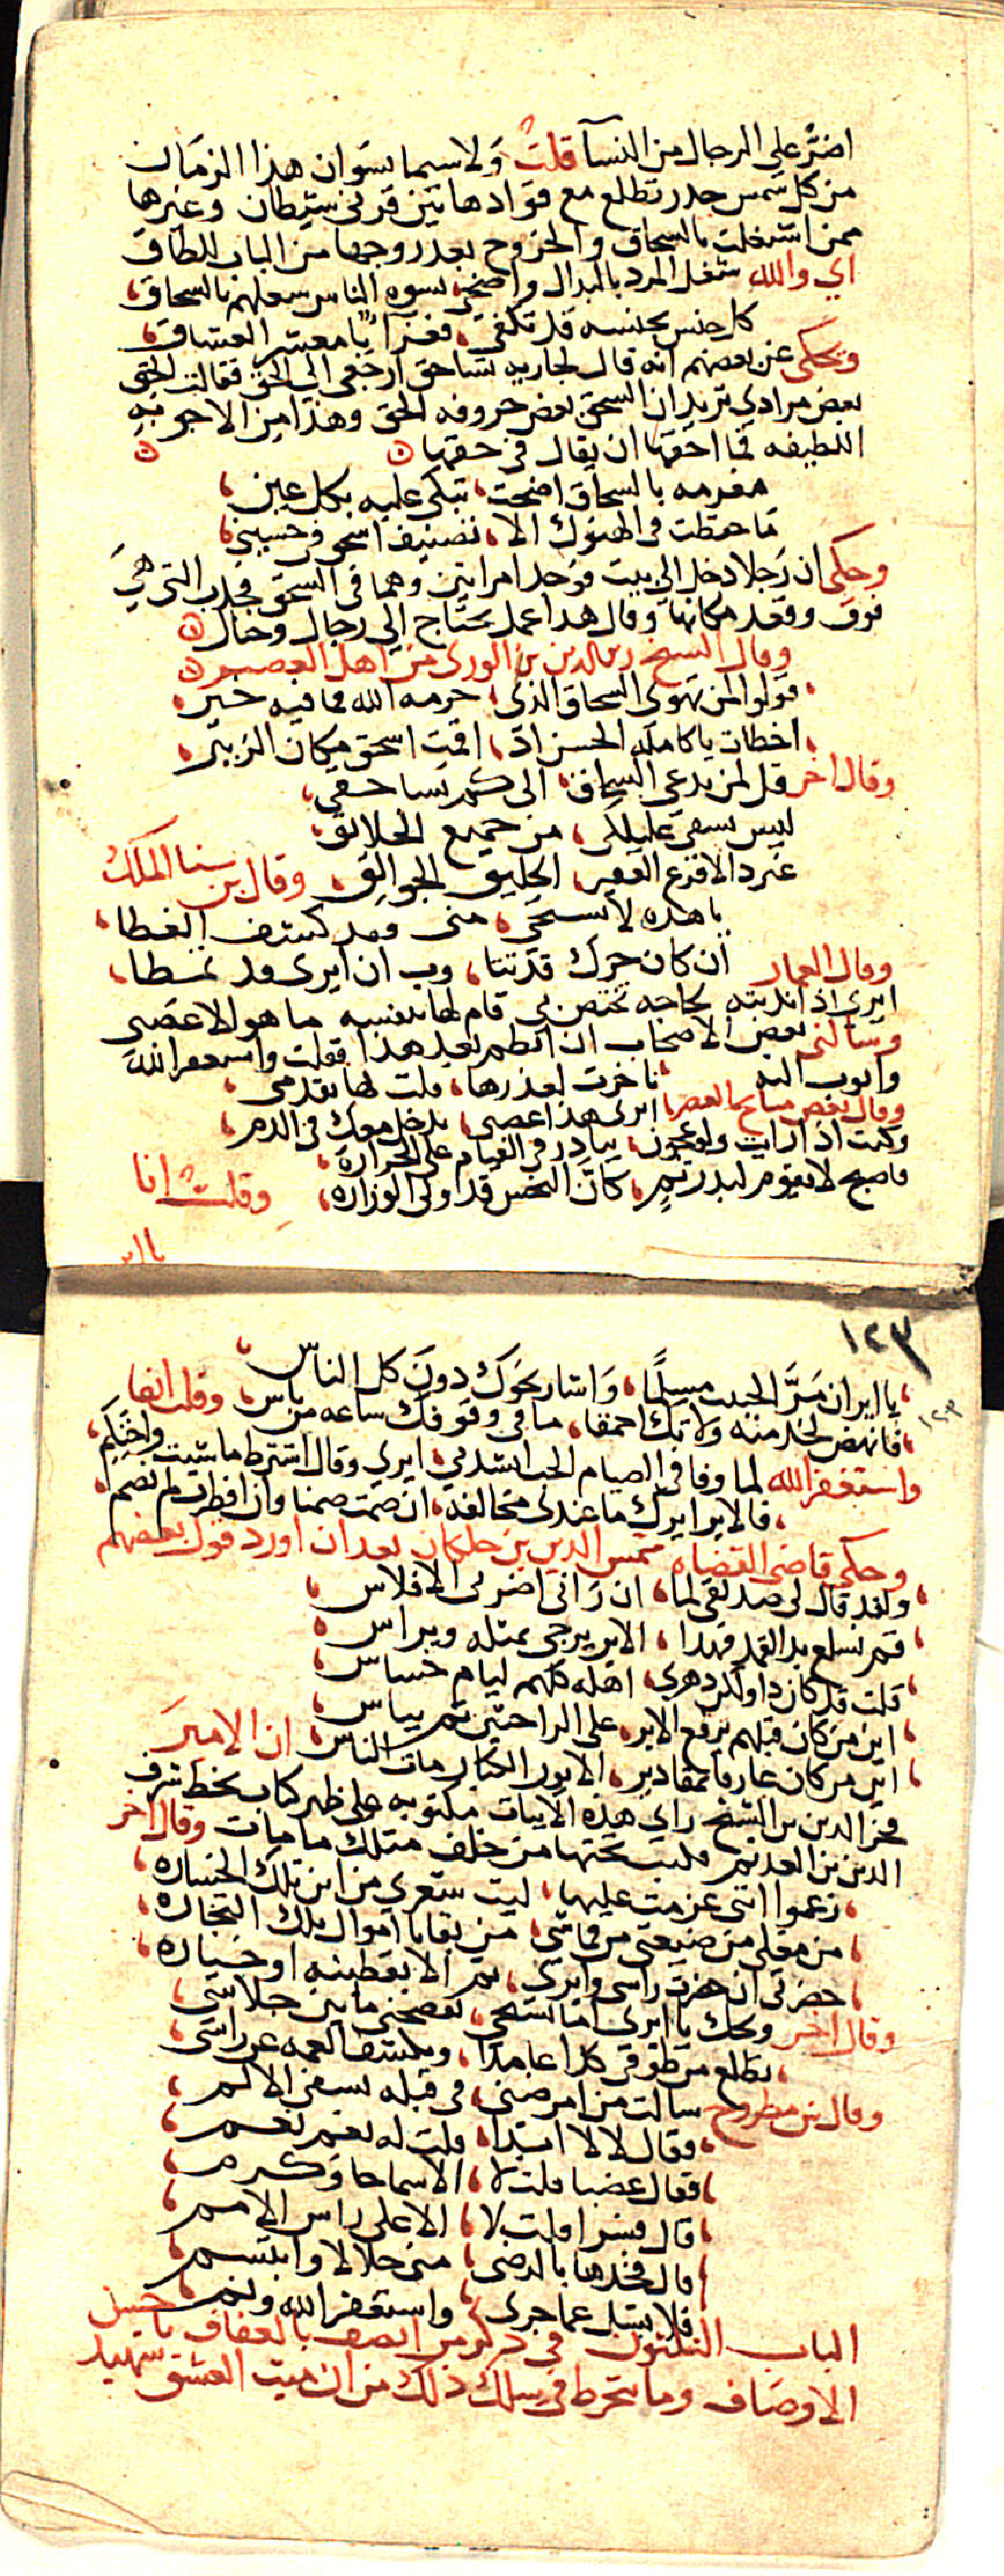 اضر على الرجال من النسآ قلت ولاسيما نسوان هذا الزمان
من كل شمس جدر تطلع مع قوادها بين قرني شيطان وغيرها
ممن اشتغلت بالسحاق والخروج بعد زوجها من الباب للطاق
اي والله شغل المرد بالبدال واضحى نسوة الناس شغلهم بالسحاق
كل جنس بجنسه قد تكفى فعزآء يا معشر العشاق
وحكى عن بعضهم انه قال لجاريه تساحق ارجعي الى الحق فقالت الحق
بعض مرادي تريد ان السحق بعض حروفه الحق وهذا من الاجوبه
اللطيفه فما احقها ان يقال في حقها
مغرمه بالسحاق اضحت تبكي عليه بكل عين
ما حفظت في الهنوك الا تصنيف اسحق في حسين
وحكى ان رجلا دخل الى بيت فوجد امراتين وهما في السحق فجذب التي هي
فوق وقعد مكانها وقال هذا عمل يحتاج الى رجال وخال
وقال الشيخ زين الدين بن الوردي من اهل العصر
قولوا لمن تهوى السحاق الذي حرمه الله فما فيه خير
اخطات يا كامله الحسن اذ اقمت اسحق مكان الزبير
وقال اخر قل لمن يدعي السحاق الى كم تساحقي
ليس يشفي غليلكي من جميع الخلائق
غير ذا الاقرع الفقير الحليق الجوالق وقال بن سنا الملك
يا هذه لا تستحي مني وقد كشف الغطا
ان كان حرك قد تثا وب ان ايري قد تمطا
وقال العمار
ايري اذا ندبته لحاجه تختص بي قام لها بنفسه ما هو الا عصبي
وسالني بعض الاصحاب ان انظم بعد هذا فقلت واستغفر الله
واتوب اليه تاخرت لعذرها قلت لها تقدمي
ايري هذا عصبي يدخل معك في الدم
وكنت اذا رايت ولو عجوز يبادر في القيام على الحراره
فاصبح لا يقوم لبدر تم كان النحس قد اولى الوزاره وقلت انا
يا اير
١٢٣
يا اير ان مر الحبيب مسلما واشار نحوك دون كل الناس
فانهض لخدمته ولا تك احمقا ما في وقوفك ساعه من باس وقلت ايضا
واستغفر الله لما وفا في الصيام الحب انشد لي ايري وقال اشترط ما شيت واحتكم
فالاير ايرك ما عندي مخالفه ان صمت صمنا وان افطرت لم نصم
وحكى قاضي القضاه شمس الدين بن خلكان بعد ان اورد قول بعضهم
ولقد قال لي صديقي لما ان راني اضر بي الافلاس
قم تسلع بدا الغمد فهذا الاير يرجى بمثله ويراس
قلت قد كان ذا ولكن دهري اهله كلهم ليام خساس
اين من كان قبلهم يرفع الاير على الراحتين ثم يباس
اين من كان عارفا بمقادير الايور الكبار مات الناس ان الامير
فخر الدين بن الشيخ راي هذه الابيات مكتوبه على ظهر كتاب بخط شرف
الدين بن العديم فكتب تحتها من خلف مثلك ما مات وقال اخر
زعموا انني عزمت عليها ليت شعري من اين تلك الخساره
من مقلي من ضيعتي من قماشي من بقايا اموال تلك التجاره
حضرتي ان حضرت راسي وايري ثم الا يقطينه او خياره
وقال اخر ويحك يا ايري اما تستحي تفضحني ما بين جلاسي
تطلع من طوقي كذا عامدا ويكشف العمه عن راسي
وقال بن مطروح سالت من امرضني في قبله تشفي الالم
فقال لا لا ابدا قلت له نعم نعم
فقال غضبا قلت لا الا سماحا وكرم
قال فسرا قلت لا الا على راس الامم
قال فخذها بالرضى مني حلالا وابتسم
فلا تسل عما جرى واستغفر الله ونم
الباب الثلاثون في ذكر من اتصف بالعفاف باحسن
الاوصاف وما ينخرط في سلك ذلك من ان ميت العشق شهيد